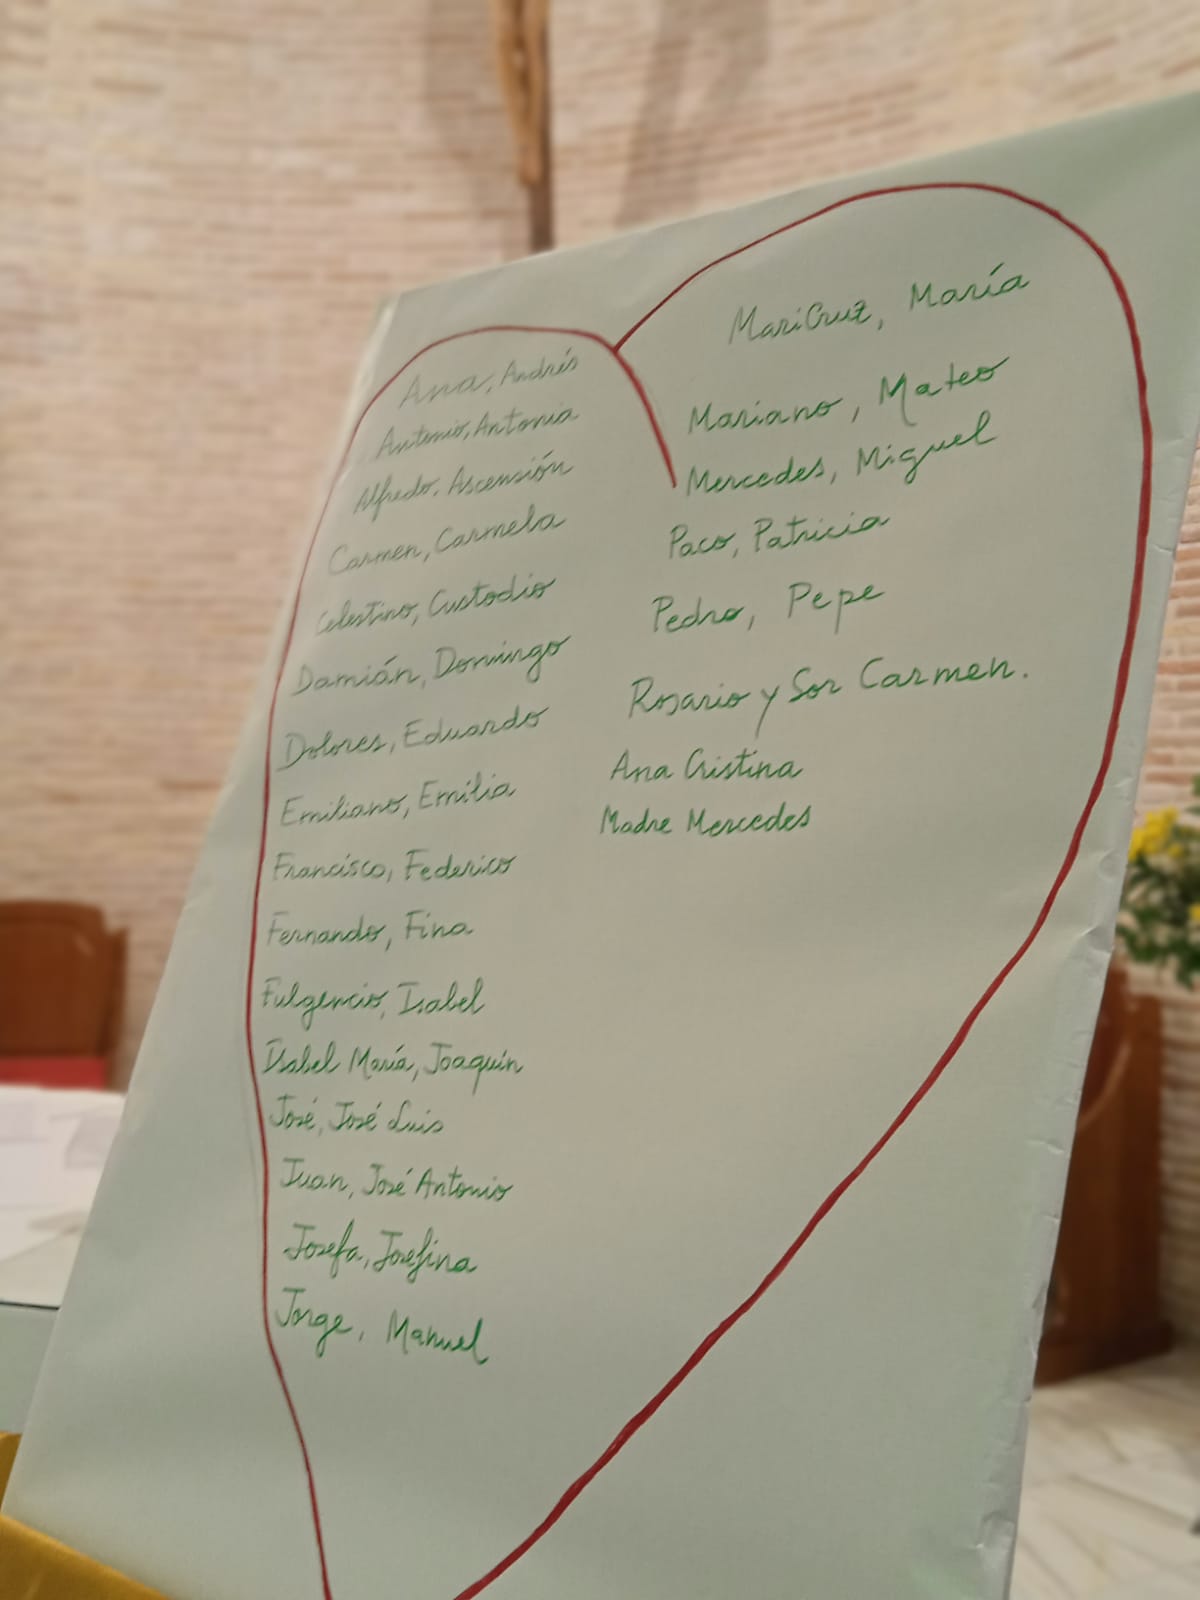 Ana, Andrés
Antonio, Antonia
Alfredo, Ascensión
Carmen, Carmela
Celestino, Custodio
Damián, Domingo
Dolores, Eduardo
Emiliano, Emilia
Francisco, Federico
Fernando, Fina
Fulgencio, Isabel
Isabel María, Joaquín
José, José Luis
Juan, José Antonio
Josefa, Josefina
Jorge, Manuel
MariCruz, María
Mariano, Mateo
Mercedes, Miguel
Paco, Patricia
Pedro, Pepe
Rosario y Sor Carmen.
Ana Cristina
Madre Mercedes